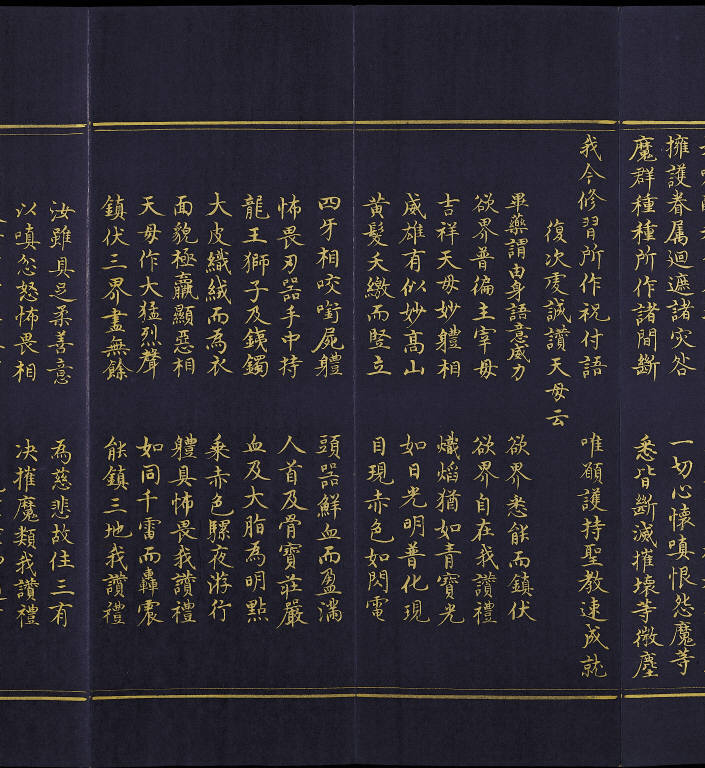 擁護眷属迴遮諸灾咎 一切心懐嗔恨怨魔等
魔群種種所作諸間斷 悉皆斷滅摧壞等微塵
我今修習所作祝付語 唯願護持聖教速成就
復次虔誠讚天母云
畢藥謂由身語意威力 欲界悉能而鎮伏
欲界普徧主宰母 欲界自在我讚禮
吉祥天母妙軆相 熾焰猶如青寶光
威雄有似妙髙山 如日光明普化現
黄髮夭繳而竪立 目現赤色如閃電
四牙相咬㗸屍軆 頭器鮮血而盈滿
怖畏刃器手中持 人首及骨寶莊嚴
龍王獅子及銕鐲 血及大脂為明點
大皮織絨而為衣 乘赤色騾夜游行
面貌極羸顯惡相 軆具怖畏我讚禮
天母作大猛烈聲 如同千雷而轟震
鎮伏三界盡無餘 能鎮三地我讚禮
汝雖具足柔善意 為慈悲故住三有
以嗔忿怒怖畏相 决摧魔類我讚禮